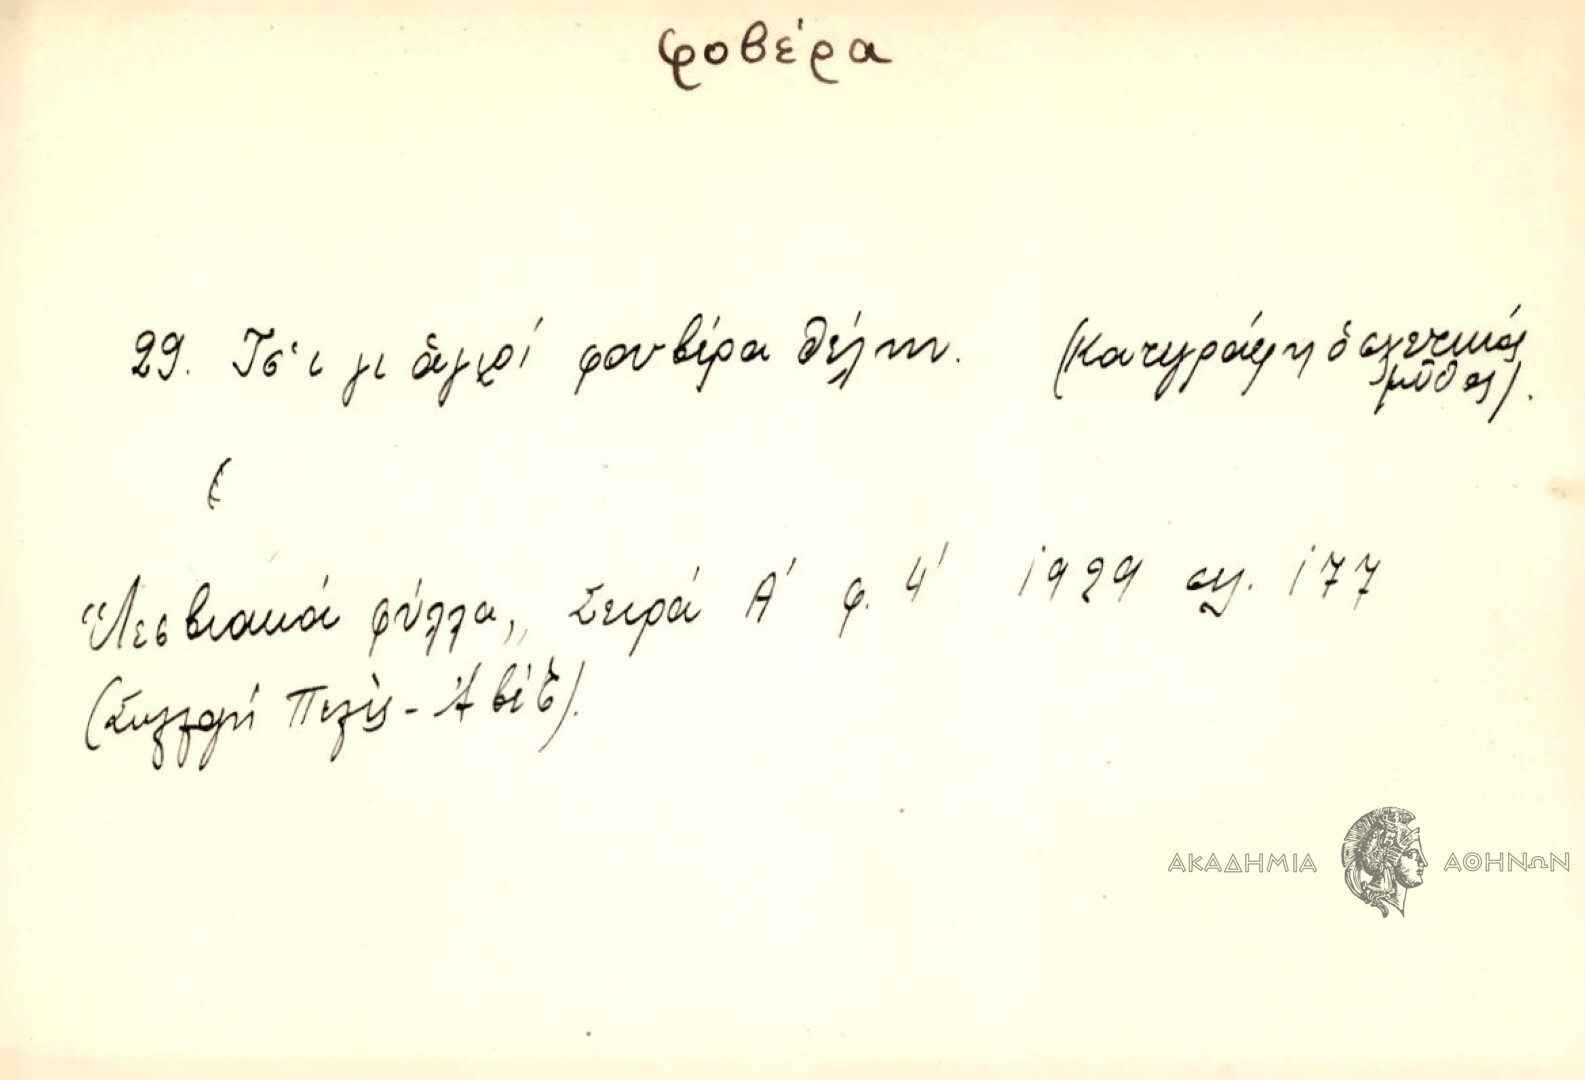 φοβέρα
29. Τσ' ι γι ἁγιοί φουβέρα θέλιν. (Κατεγράφη ὁ σχετικός
μῦθος).
(
"Λεσβιακά φύλλα„ Σειρά Α' φ. 4' 1929 σελ. 177
(Συλλογή
ΑΚΑΔΗΜΙΑ ΑΘΗΝΩΝ